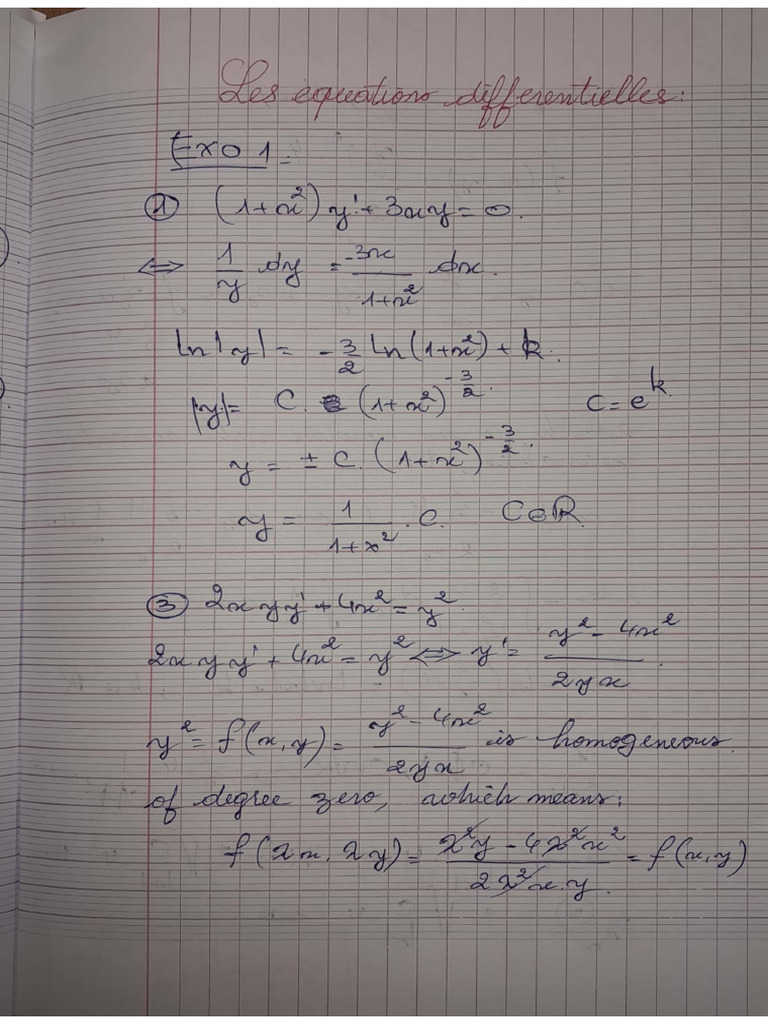 Les équations différentielles:
Exo 1 -
① (1+x²) y' + 3xy = 0.
⟺ 1/y dy = -3x/(1+x²) dx.
ln|y| = -3/2 ln(1+x²) + k.
|y| = C. (1+x²)^(-3/2). C = e^k.
y = ± C. (1+x²)^(-3/2).
y = 1/(1+x²) . C. C∈ℝ
③ 2xyy' + 4x² = y²
2xyy' + 4x² = y² ⟺ y' = (y² - 4x²)/(2yx).
y² = f(x,y) = (y² - 4x²)/(2yx) is homogeneous.
of degree zero, which means:
f(λx, λy) = (λ²y - 4λ²x²)/(2λ²x.y) = f(x,y)